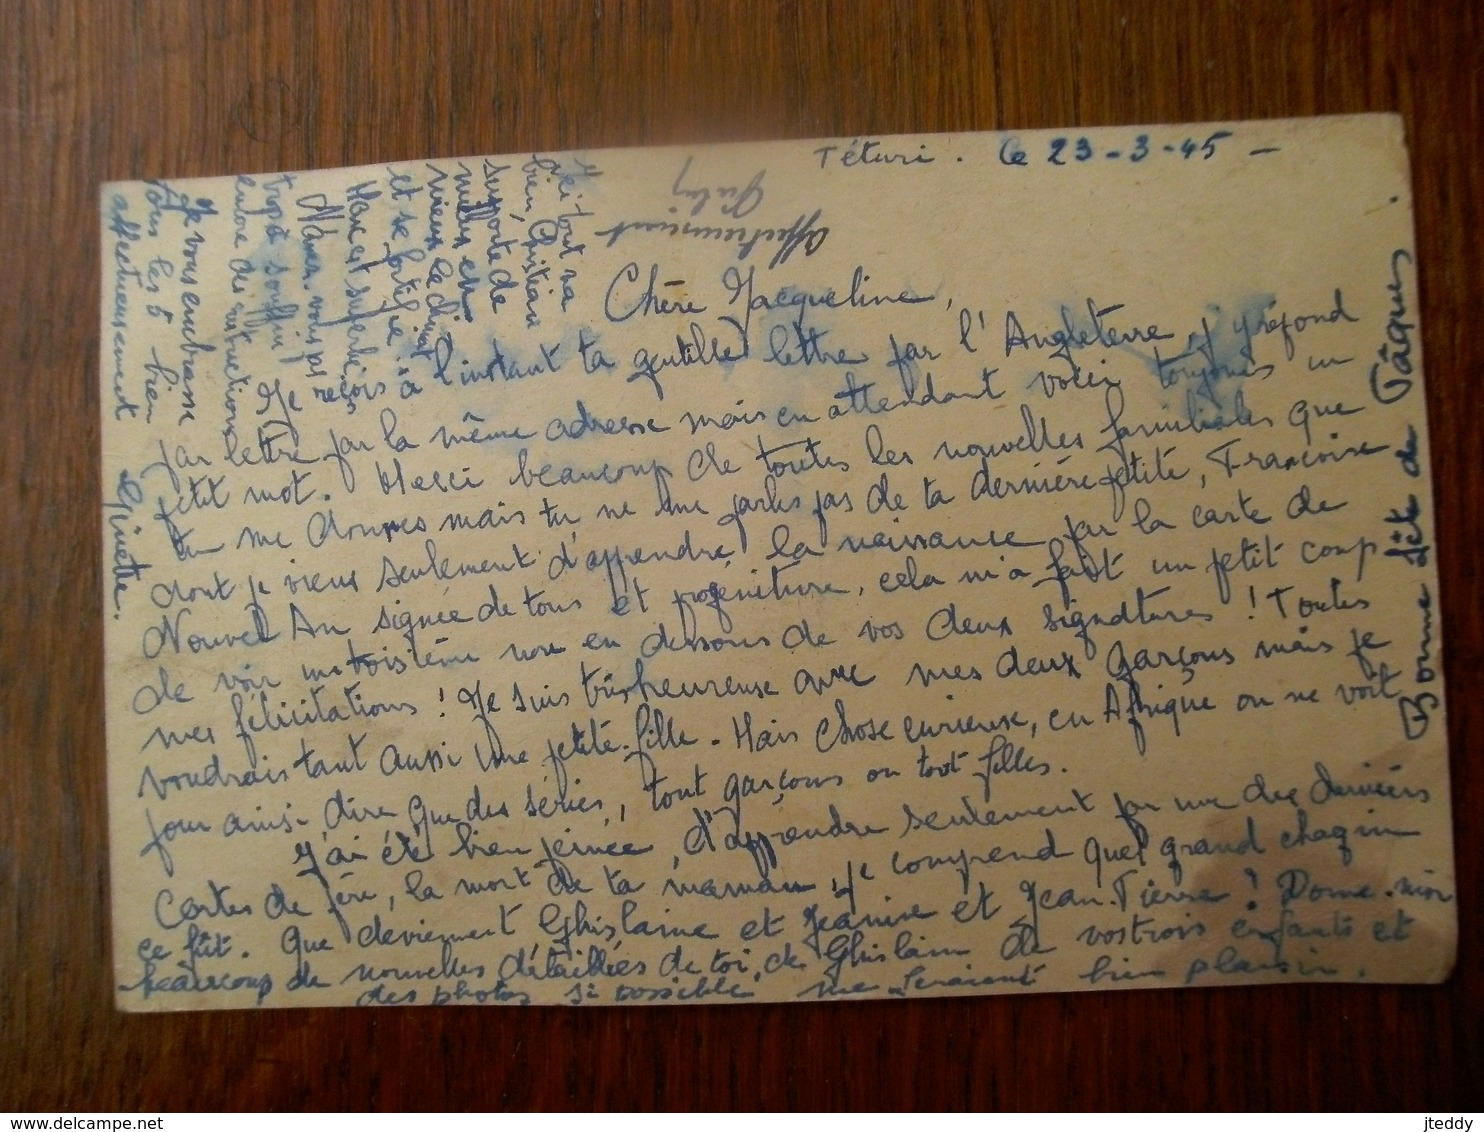 Téturi. le 23-3-45 -
Chère Jacqueline,
Je reçois à l'instant ta gentille lettre par l'Angleterre, j'y répond
par lettre par la même adresse mais en attendant voici toujours un
petit mot. Merci beaucoup de toutes les nouvelles familiales que
tu me donnes mais tu ne me parles pas de ta dernière petite, Françoise
dont je viens seulement d'apprendre la naissance par la carte de
Nouvel An signée de tous et progéniture, cela m'a fait un petit coup
de voir un troisième nom en dessous de vos deux signatures ! Toutes
mes félicitations ! Je suis très heureuse avec mes deux garçons mais je
voudrais tant aussi une petite fille. Mais chose curieuse, en Afrique on ne voit
pour ainsi dire que des séries, tout garçons ou tout filles.
J'ai été bien peinée, d'apprendre seulement par une des dernières
cartes de Père, la mort de ta maman, je comprend quel grand chagrin
ce fût. Que deviennent Ghislaine et Jeanine et Jean-Pierre ? Donne-moi
beaucoup de nouvelles détaillées de toi, de Ghislain de vos trois enfants et
des photos si possible me feraient bien plaisir.
Ici tout va
bien, Christian
supporte de
mieux en
mieux le climat
et se fortifie
Max est superbe
N'avez-vous pas
trop à souffrir
encore des
Je vous embrasse
tous les 5 bien
affectueusement
Ginette.
affectueusement
Bonne fête de Pâques.
jteddy